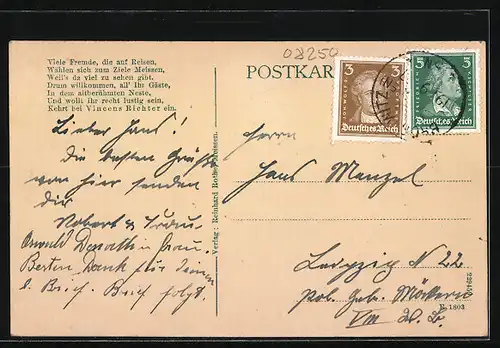 08250
Viele Fremde, die auf Reisen,
Wählen sich zum Ziele Meissen,
Weil's da viel zu sehen gibt.
Drum willkommen, all' Ihr Gäste,
In dem altberühmten Neste,
Und wollt Ihr recht lustig sein,
Kehrt bei Vincenz Richter ein.
POSTKAR
3 3
Deutsches Reich
5 5
Deutsches Reich
Lieber Hans!
Die besten Grüße
von hier senden
dir
Robert u. Frau
Oswald Donath u. Frau.
Besten Dank für
l. Brief. Brief folgt.
Verlag: Reinhard Rothe, Meissen.
Herrn
Hans Menzel
Leipzig N 22
Möckern
E. 1803